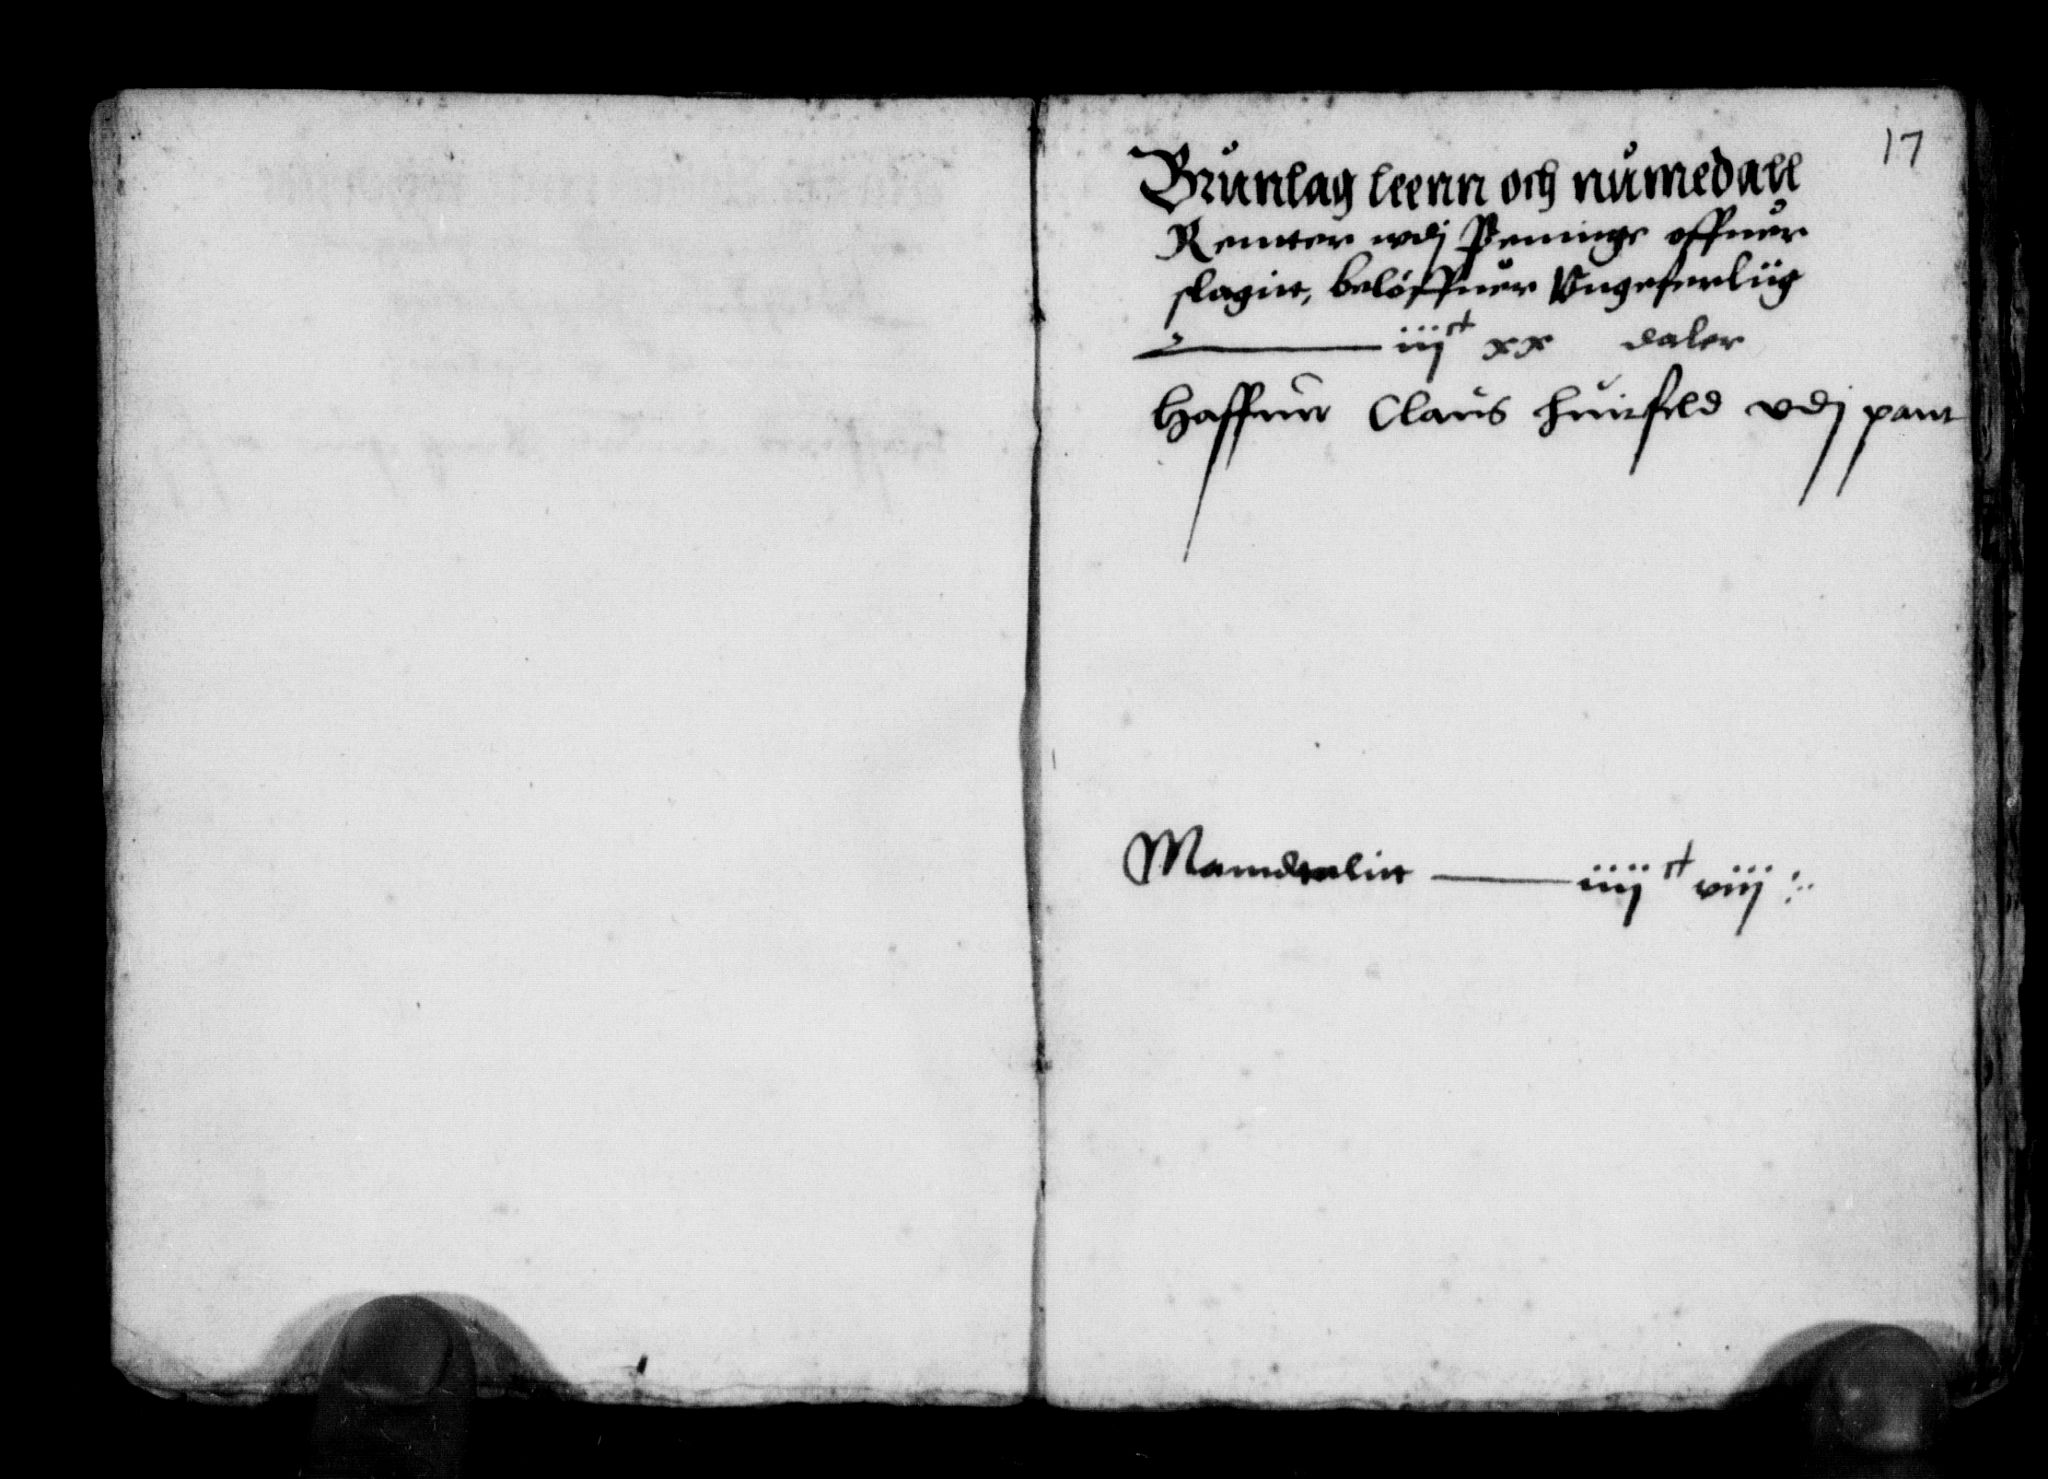 17
Brunlag leenn och numedall
Renter wdj Peninge offuer
slagitt, beløffuer Vngeferlüg
iijᶜ xx daler
Haffuer Claus huitfeld vdj pant
Mandtalitt iiijᶜ viij